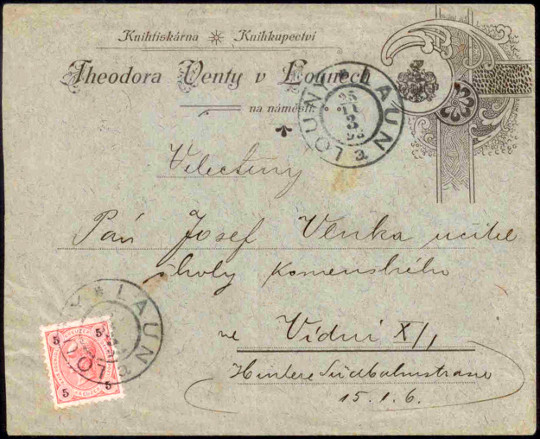 Knihtiskárna ✳ Knihkupectví
Theodora Venty v Lounech
na náměstí.
LOUNY * LAUN
25
3
93
Veletěný
Pán Josef Venka učitel
školy Komenského
ve Vídni X/1
Hintere Südbahnstrasse
15.1.6.
LOUNY * LAUN
5
5
5
5